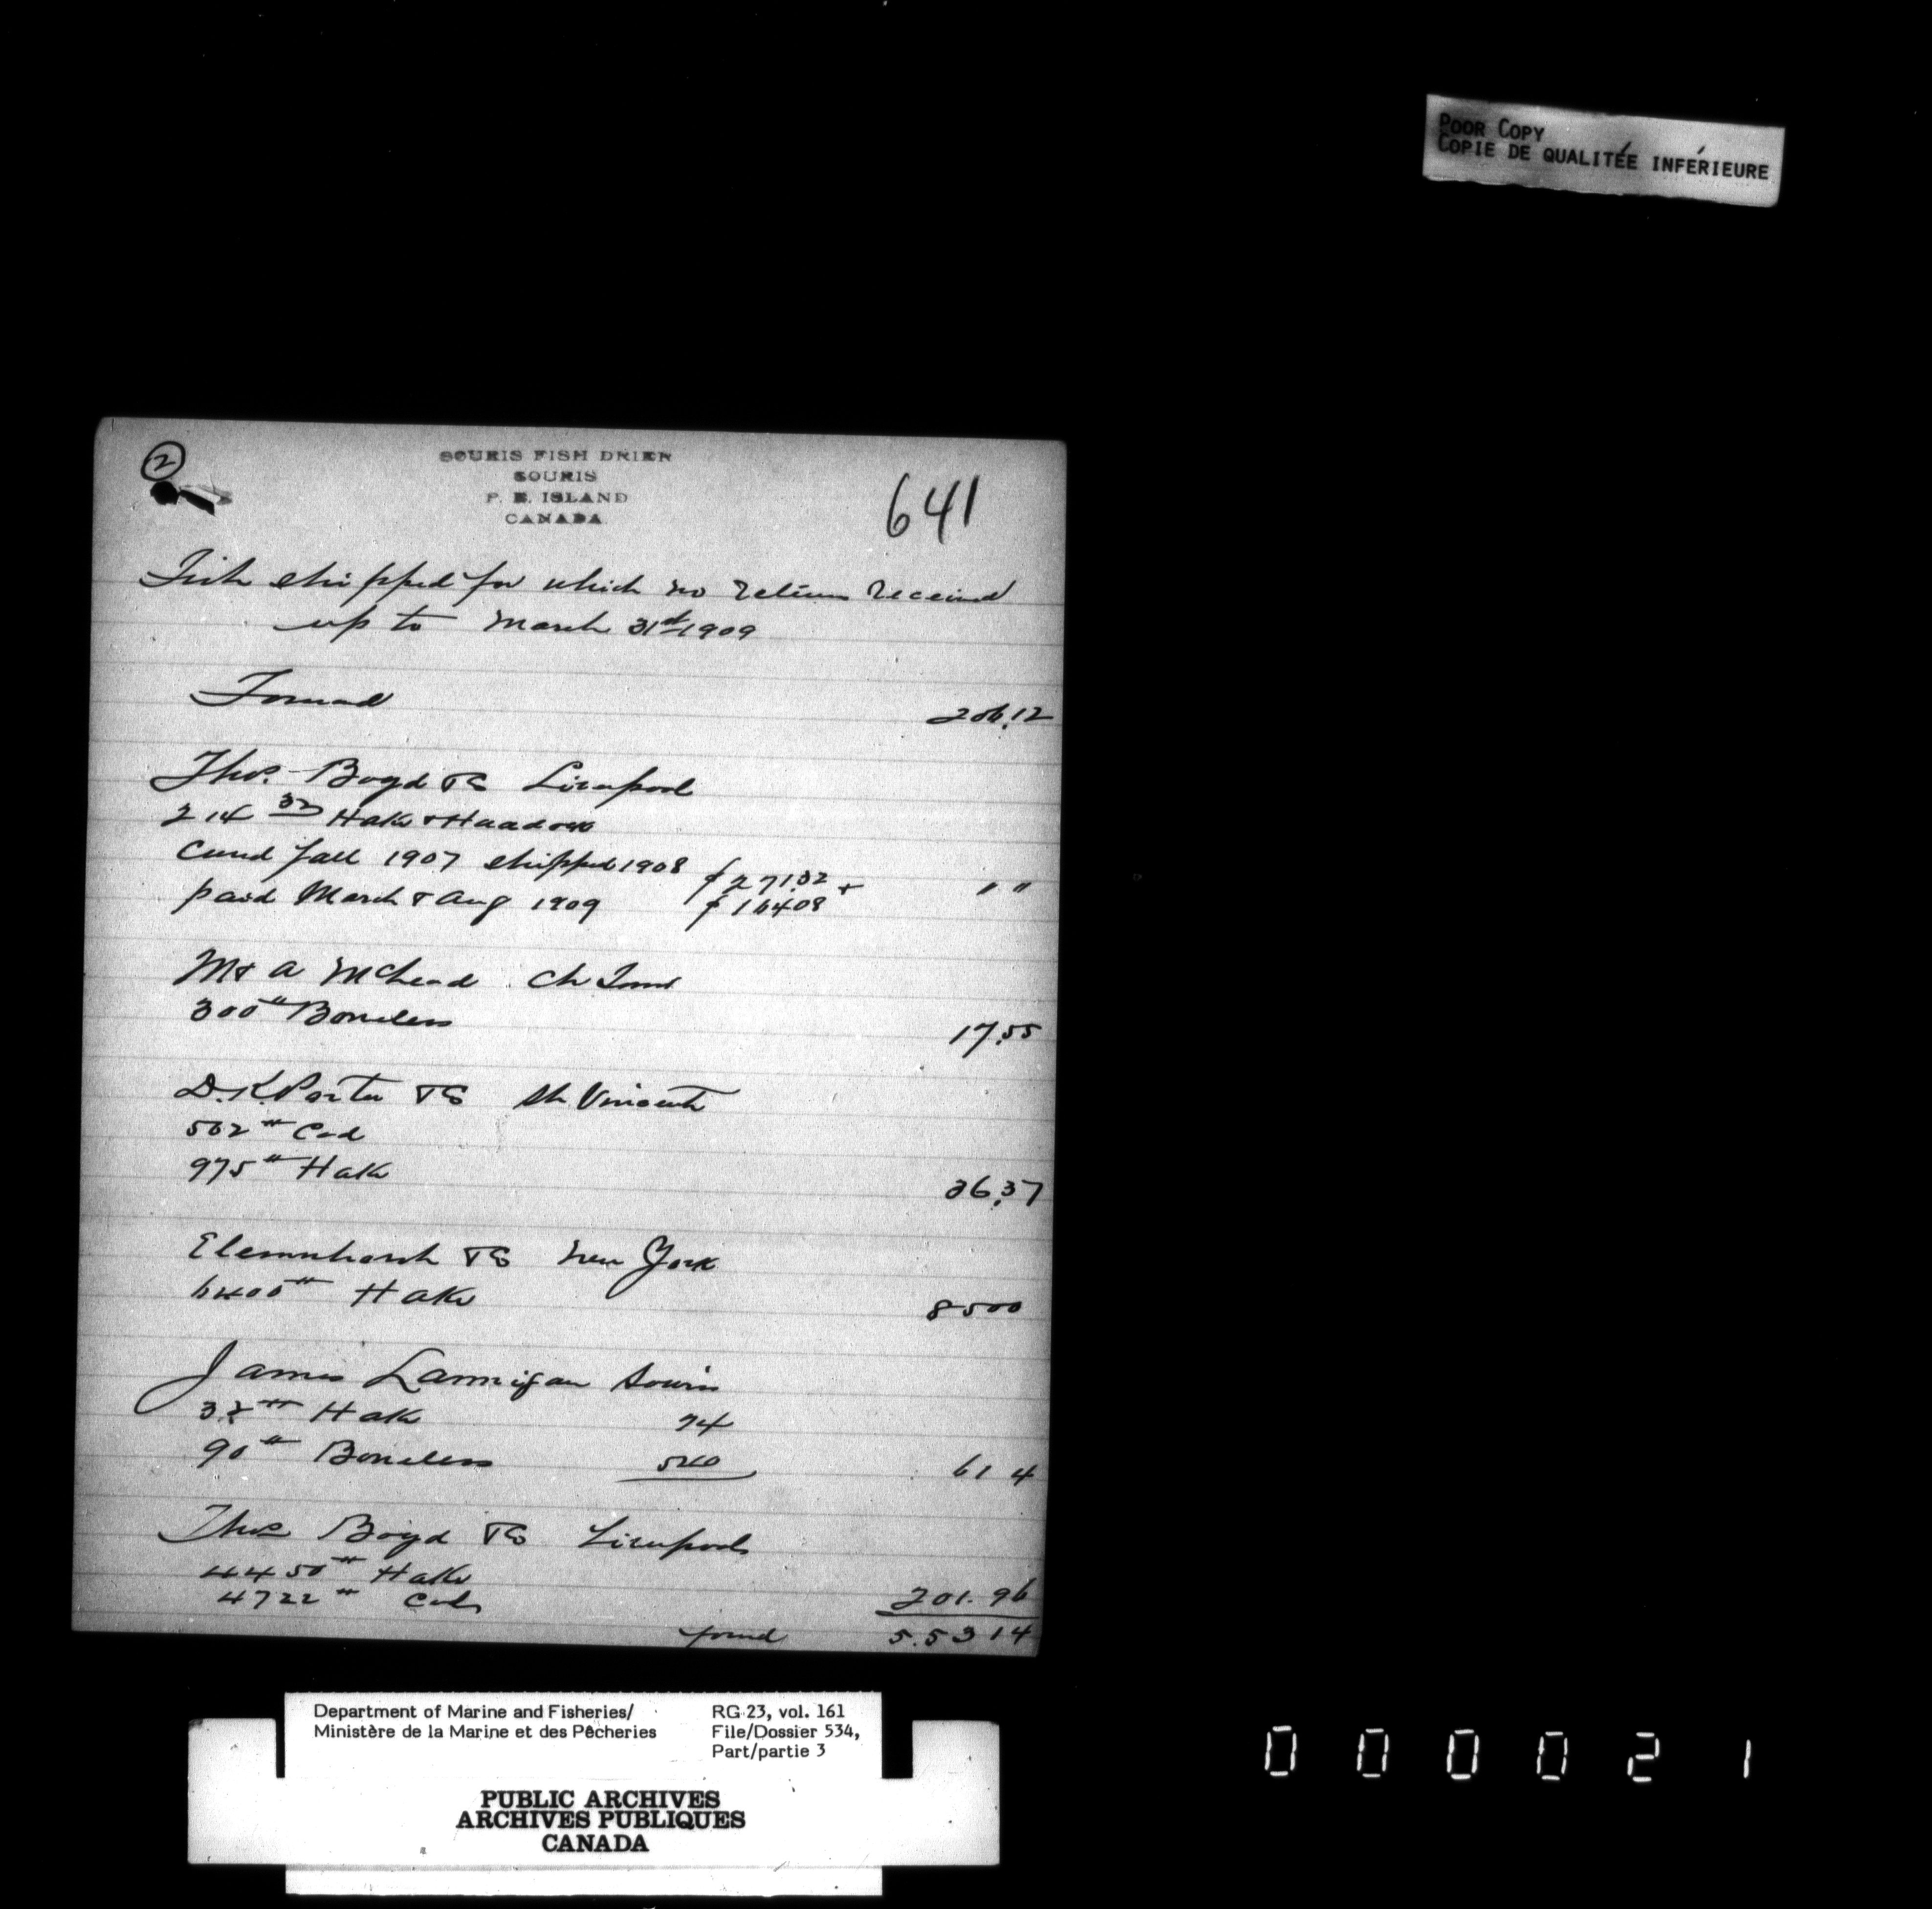 POOR COPY
COPIE DE QUALITÉE INFÉRIEURE
2
SOURIS FISH DRIER
SOURIS
P. E. ISLAND
CANADA
641
Fish shipped for which no return received
up to March 31st 1909
Forward 206.12
Thos. Boyd & Co Liverpool
214 32 Hake & Haddock
Cured fall 1907 shipped 1908 $271.32 +
paid March & Aug 1909 $164.08 " "
M & A McLeod Ch Town
300 # Boneless 17.55
D. K. Porter & Co St Vincent
562 # Cod
975 # Hake 36.37
& Co New York
6400 # Hake 85 00
James Lannigan Souris
32 # Hake 74
90 # Boneless 540 6 1 4
Thos Boyd & Co Liverpool
4450 # Hake
4722 # Cod 201.96
forwd 5.53 14
Department of Marine and Fisheries/
Ministère de la Marine et des Pêcheries
RG 23, vol. 161
File/Dossier 534,
Part/partie 3
PUBLIC ARCHIVES
ARCHIVES PUBLIQUES
CANADA
000021